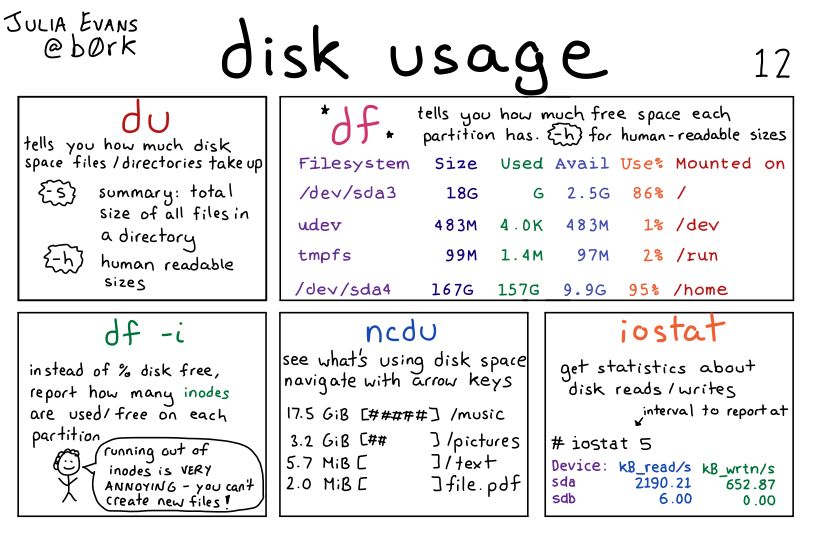 JULIA EVANS
@b0rk
disk usage
12
du
tells you how much disk
space files/directories take up
-s summary: total
size of all files in
a directory
-h human readable
sizes
*df*
tells you how much free space each
partition has. -h for human-readable sizes
Filesystem Size Used Avail Use% Mounted on
/dev/sda3 18G G 2.5G 86% /
udev 483M 4.0K 483M 1% /dev
tmpfs 99M 1.4M 97M 2% /run
/dev/sda4 167G 157G 9.9G 95% /home
df -i
instead of % disk free,
report how many inodes
are used/free on each
partition
running out of
inodes is VERY
ANNOYING - you can't
create new files!
ncdu
see what's using disk space
navigate with arrow keys
17.5 GiB [#####] /music
3.2 GiB [## ] /pictures
5.7 MiB [ ] /text
2.0 MiB [ ] file.pdf
iostat
get statistics about
disk reads/writes
interval to report at
# iostat 5
Device: kB_read/s kB_wrtn/s
sda 2190.21 652.87
sdb 6.00 0.00